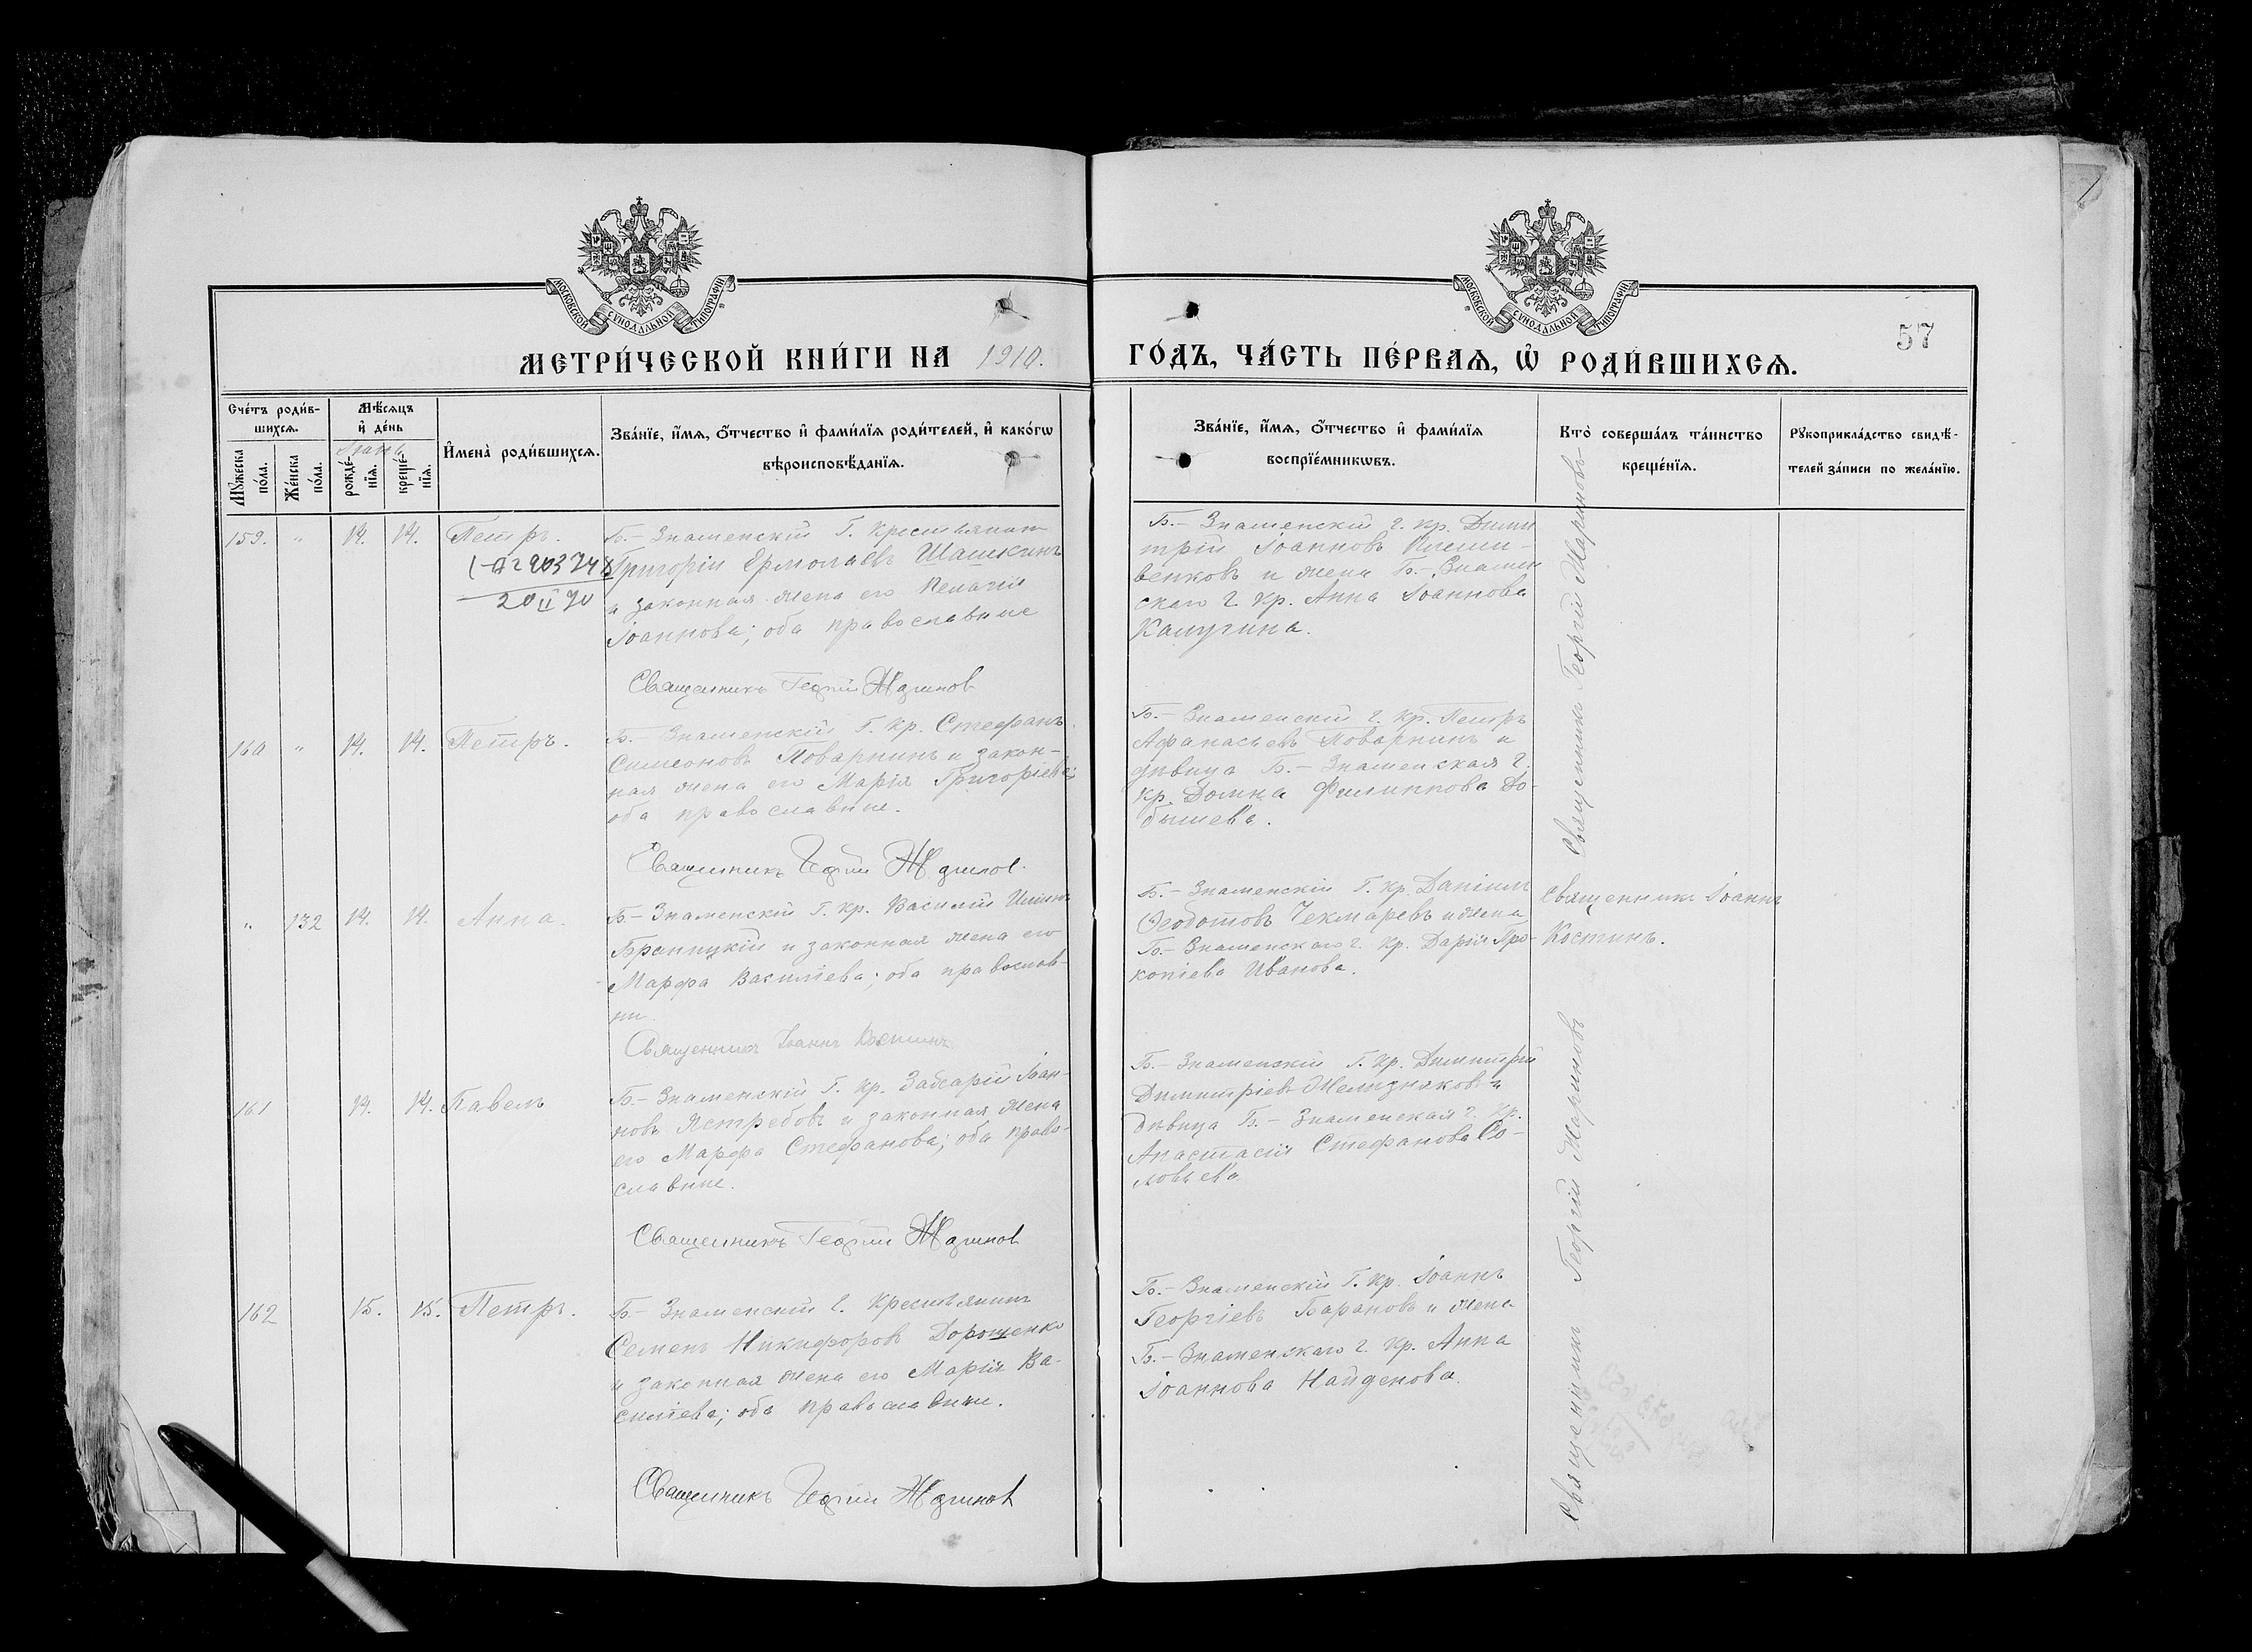 МОСКОВСКОЙ СУНОДАЛЬНОЙ ТИПОГРАФІИ
МОСКОВСКОЙ СУНОДАЛЬНОЙ ТИПОГРАФІИ
57
МЕТРИ́ЧЕСКОЙ КНИ́ГИ НА 1910.
ГО́ДЪ, ЧА́СТЬ ПЕ́РВАѦ, Ѡ҆ РОДИ́ВШИХСѦ.
Сче́тъ роди́в-
шихсѧ.
Мꙋжеска
по́ла.
Же́нска
по́ла.
Мѣ́сѧцъ
и҆ де́нь
рожде́-
нїѧ.
креще́-
нїѧ.
И҆мена̀ роди́вшихсѧ.
Зва́нїе, и҆́мѧ, ѻ҆́тчество и҆ фами́лїѧ роди́телей, и҆ како́гѡ
вѣроисповѣ́данїѧ.
Зва́нїе, и҆́мѧ, ѻ҆́тчество и҆ фами́лїѧ
воспрїе́мникѡвъ.
Кто̀ соверша́лъ та́инство
креще́нїѧ.
Рꙋкоприкла́дство свидѣ́-
телей за́писи по жела́нїю.
159. " 14. 14. Петръ.
20 II 90
Б.- Знаменскій Г. Крестьянинъ
Григорій Ермолаевъ Шашкинъ
и законная жена его Пелагія
Іоаннова; оба православные
Священникъ Георгій Маринов
Б.- Знаменскій г. кр. Дими
трій Іоанновъ
венковъ и жена Б.- Знамен
скаго г. кр. Анна Іоаннова
Калугина.
Священникъ Георгій Мариновъ
160 " 14. 14. Петръ.
Б.- Знаменскій Г. Кр. Стефанъ
Симеоновъ Поварнинъ и закон-
ная жена его Марія Григоріева;
оба православные.
Священникъ Георгій Маринов
Б.- Знаменскій г. кр. Петръ
Афанасьевъ Поварнинъ и
дѣвица Б.- Знаменская г.
кр. Домна Филиппова До-
бышева.
" 132 14. 14. Анна.
Б- Знаменскій Г. кр. Василій
Браницкій и законная жена его
Марфа Василіева; оба православ-
ны
Священникъ Іоаннъ Костинъ
Б.- Знаменскій Г. кр. Даніилъ
Ѳеодотовъ Чекмаревъ и жена
Б.- Знаменскаго г. кр. Дарія Про-
копіева Иванова.
Священникъ Іоаннъ
Костинъ.
161 14. 14. Павелъ
Б.- Знаменскій Г. Кр. Іоан-
новъ Ястребовъ и законная жена
его Марфа Стефанова; оба право-
славные.
Священникъ Георгій Маринов
Б.- Знаменскій Г. Кр. Димитрій
Димитріевъ Желизняковъ и
дѣвица Б.- Знаменская г. кр.
Анастасія Стефанова Со-
ловьева
Священникъ Георгій Мариновъ
162 15. 15. Петръ.
Б- Знаменскій г. Крестьянинъ
Семенъ Никифоровъ Дорошенко
и законная жена его Марія Ва-
силіева; оба православные.
Священникъ Георгій Маринов
Б.- Знаменскій Г. кр. Іоаннъ
Георгіевъ Барановъ и жена
Б.- Знаменскаго г. кр. Анна
Іоаннова Найденова.